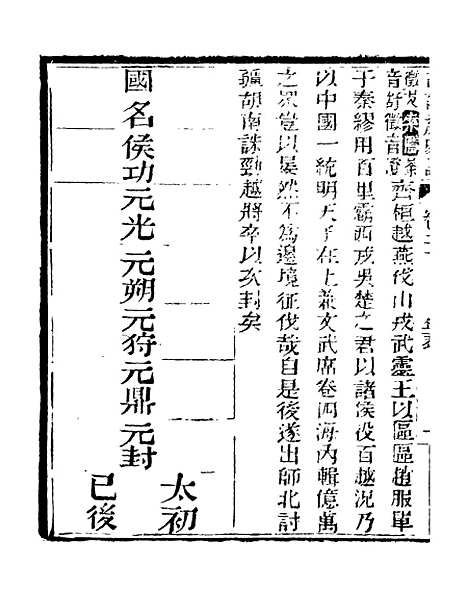 齊桓越燕伐山戎武靈王以區區趙服單
于秦繆用百里霸西戎吳楚之君以諸侯役百越況乃
以中國一統明天子在上兼文武席卷四海內輯億萬
之眾豈以晏然不為邊境征伐哉自是後遂出師北討
疆胡南誅勁越將卒以次封矣
國名侯功元光元朔元狩元鼎元封
太初
已後